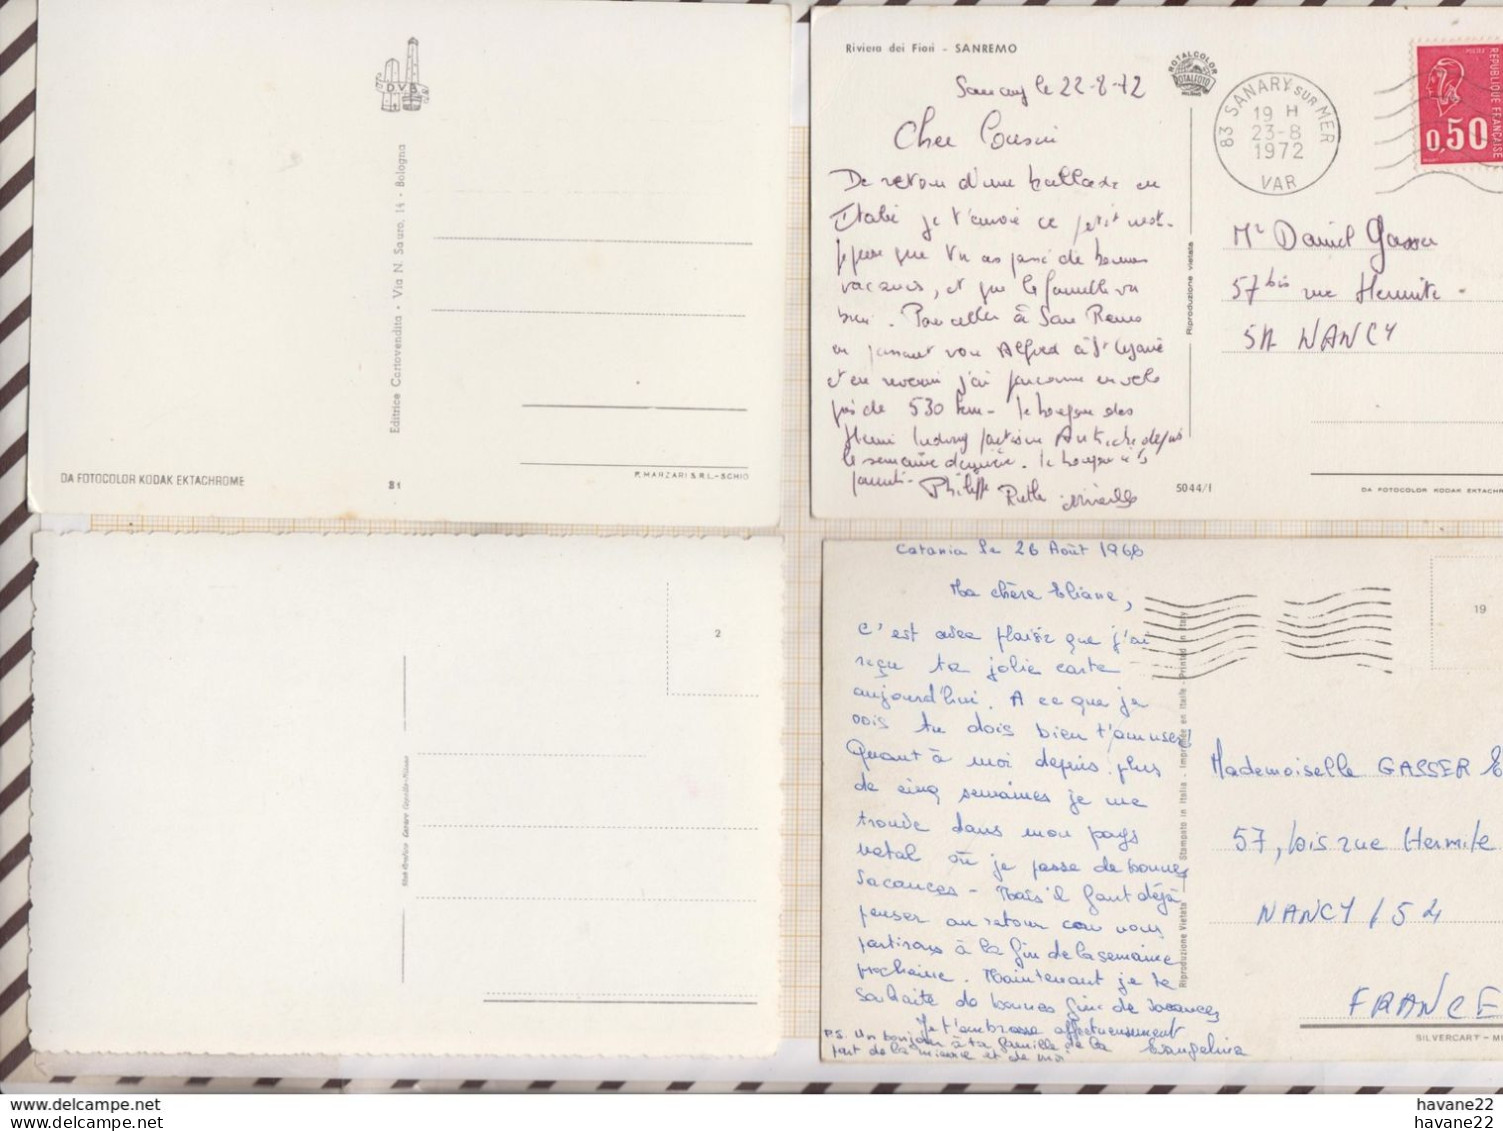 DVB
Editrice Cartovendita - Via N. Sauro, 14 - Bologna
DA FOTOCOLOR KODAK EKTACHROME
81
P. MANZARI S.R.L.-SCHIO
Riviera dei Fiori - SANREMO
ROTALCOLOR
ROTALFOTO
Sanary le 22-8-72
Cher Cousin
De retour d'une ballade en
Italie je t'envoie ce petit mot.
J'espère que tu as passé de bonnes
vacances, et que la famille va
bien. Pour aller à San Remo
en passant voir Alfred à St
et en revenir j'ai parcouru en vélo
près de 530 km - le bonjour des
Henri Ludwig
la semaine dernière. le bonjour à ts
Philippe Ruth Mireille
Riproduzione vietata
5044/I
83 SANARY SUR MER
19 H
23-8
1972
VAR
REPUBLIQUE FRANÇAISE
0,50
Mr Daniel Gasser
57 bis rue Hermite -
54 NANCY
DA FOTOCOLOR KODAK EKTACHR
2
Catania le 26 Août 1966
Ma chère Eliane,
C'est avec plaisir que j'ai
reçu ta jolie carte
aujourd'hui. A ce que je
vois tu dois bien t'amuser!
Quant à moi depuis plus
de cinq semaines je me
trouve dans mon pays
natal où je passe de bonnes
vacances - Mais il faut déjà
penser au retour car nous
partirons à la fin de la semaine
prochaine. Maintenant je te
souhaite de bonnes fin de vacances
Je t'embrasse affectueusement
Evangelina
P.S. Un bonjour à ta famille de la
part de la mienne et de moi
Riproduzione Vietata - Stampato in Italia - Imprimée en Italie - Printed in Italy
19
Mademoiselle GASSER E
57, bis rue Hermite
NANCY / 54
FRANCE
SILVERCART - MI
havane22
havane22
havane22
havane22